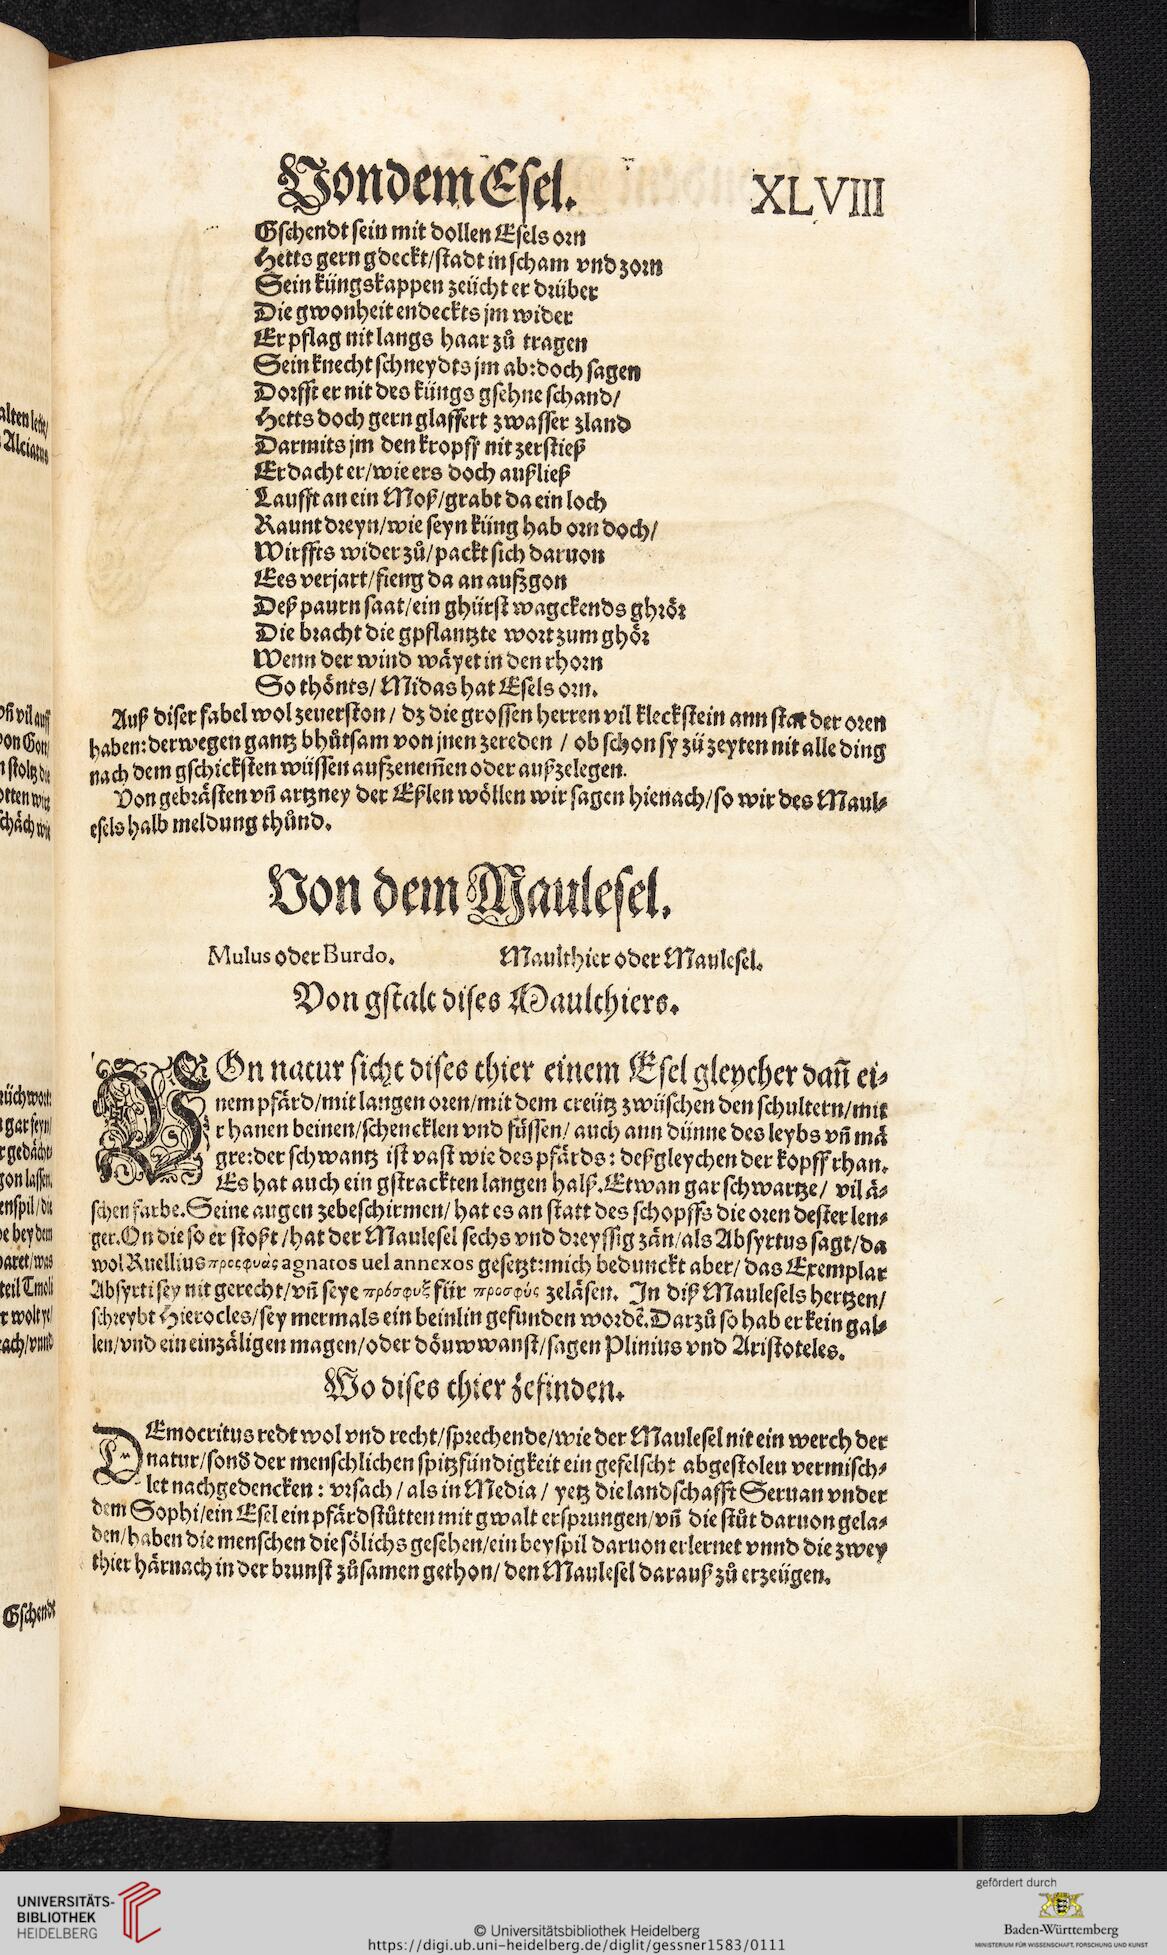 Von dem Esel. XLVIII
Gschendt sein mit dollen Esels orn
Hetts gern gdeckt/stadt in scham vnd zorn
Sein küngskappen zeücht er drüber
Die gwonheit endeckts jm wider
Er pflag nit langs haar zů tragen
Sein knecht schneydts jm ab: doch sagen
Dorfft er nit des küngs gsehne schand/
Hetts doch gern glaffert zwasser zland
Darmits jm den kropff nit zerstieß
Erdacht er/wie ers doch außließ
Laufft an ein Moß/grabt da ein loch
Raunt dreyn/wie seyn küng hab orn doch/
Wirffts wider zů/packt sich daruon
Ees verjart/fieng da an aufzgon
Deß paurn saat/ein ghürst wagckends ghrör
Die bracht die gpflantzte wort zum ghör
Wenn der wind wäyet in den rhorn
So thönts/Midas hat Esels orn.
Auß diser fabel wol zeuerston/ dz die grossen herren vil kleckstein ann stat der oren
haben: derwegen gantz bhůtsam von jnen zereden / ob schon sy zü zeyten nit alle ding
nach dem gschicksten wüssen aufzenem̃en oder außzelegen.
Von gebrästen vñ artzney der Eßlen wöllen wir sagen hienach/so wir des Maul⸗
esels halb meldung thůnd.
Von dem Maulesel.
Mulus oder Burdo. Maulthier oder Maulesel.
Von gstalt dises Maulthiers.
VOn natur sicht dises thier einem Esel gleycher dañ ei⸗
nem pfärd/mit langen oren/mit dem creütz zwüschen den schultern/mit
rhanen beinen/schencklen vnd füssen/ auch ann dünne des leybs vñ mä
gre: der schwantz ist vast wie des pfärds: deßgleychen der kopff rhan.
Es hat auch ein gstrackten langen halß. Etwan gar schwartze/ vil ä⸗
schen farbe. Seine augen zebeschirmen/ hat es an statt des schopffs die oren dester len⸗
ger. On die so er stoßt/hat der Maulesel sechs vnd dreyssig zän/als Absyrtus sagt/da
wol Ruellius προσφυὰς agnatos uel annexos gesetzt: mich bedunckt aber/ das Exemplar
Absyrti sey nit gerecht/vñ seye πρόσφυξ für προσφύς zeläsen. In diß Maulesels hertzen/
schreybt Hierocles/sey mermals ein beinlin gefunden wordẽ. Darzů so hab er kein gal⸗
len/vnd ein einzäligen magen/oder döuwwanst/sagen Plinius vnd Aristoteles.
Wo dises thier zefinden.
DEmocritus redt wol vnd recht/sprechende/wie der Maulesel nit ein werch der
natur/sond̃ der menschlichen spitzfündigkeit ein gefelscht abgestolen vermisch⸗
let nachgedencken: vrsach / als in Media / yetz die landschafft Seruan vnder
dem Sophi/ein Esel ein pfärdstůtten mit gwalt ersprungen/vñ die stůt daruon gela⸗
den/haben die menschen die sölichs gesehen/ein beyspil daruon erlernet vnnd die zwey
thier härnach in der brunst zůsamen gethon/ den Maulesel darauß zů erzeügen.
Gschende
UNIVERSITÄTS-
BIBLIOTHEK
HEIDELBERG
© Universitätsbibliothek Heidelberg
https://digi.ub.uni-heidelberg.de/diglit/gessner1583/0111
gefördert durch
Baden-Württemberg
MINISTERIUM FÜR WISSENSCHAFT, FORSCHUNG UND KUNST